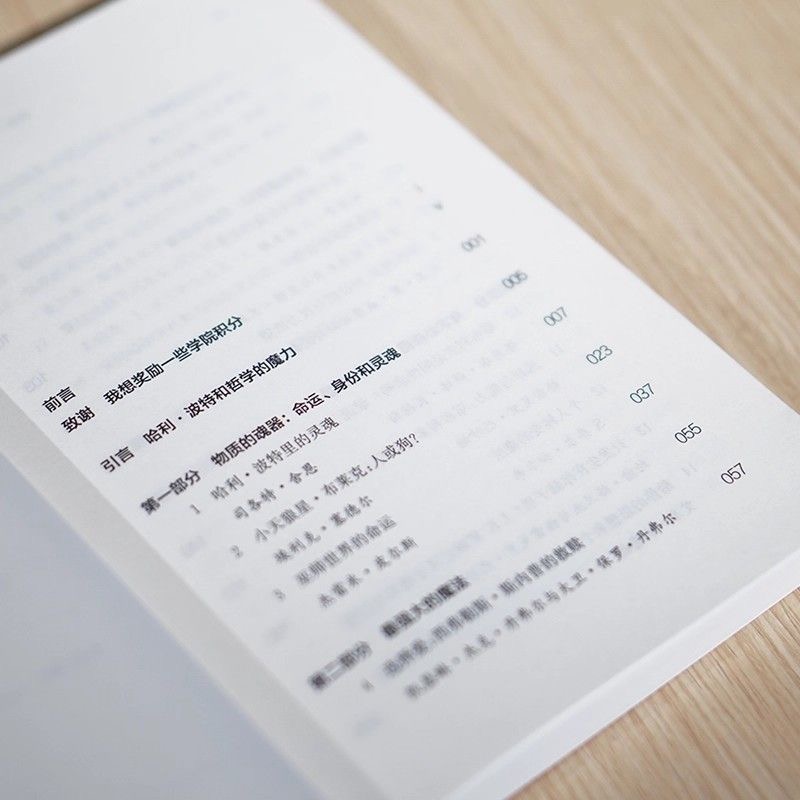 前言 I
致谢 我想奖励一些学院积分 V
引言 哈利·波特和哲学的魔力 001
第一部分 物质的魂器：命运、身份和灵魂 005
1 哈利·波特里的灵魂 007
司各特·舍恩
2 小天狼星·布莱克：人或狗？ 023
埃利克·塞德尔
3 巫师世界的命运 037
杰雷米·皮尔斯
第二部分 最强大的魔法 055
4 选择爱：西弗勒斯·斯内普的救赎 057
凯瑟琳·杰克·丹弗尔与大卫·保罗·丹弗尔